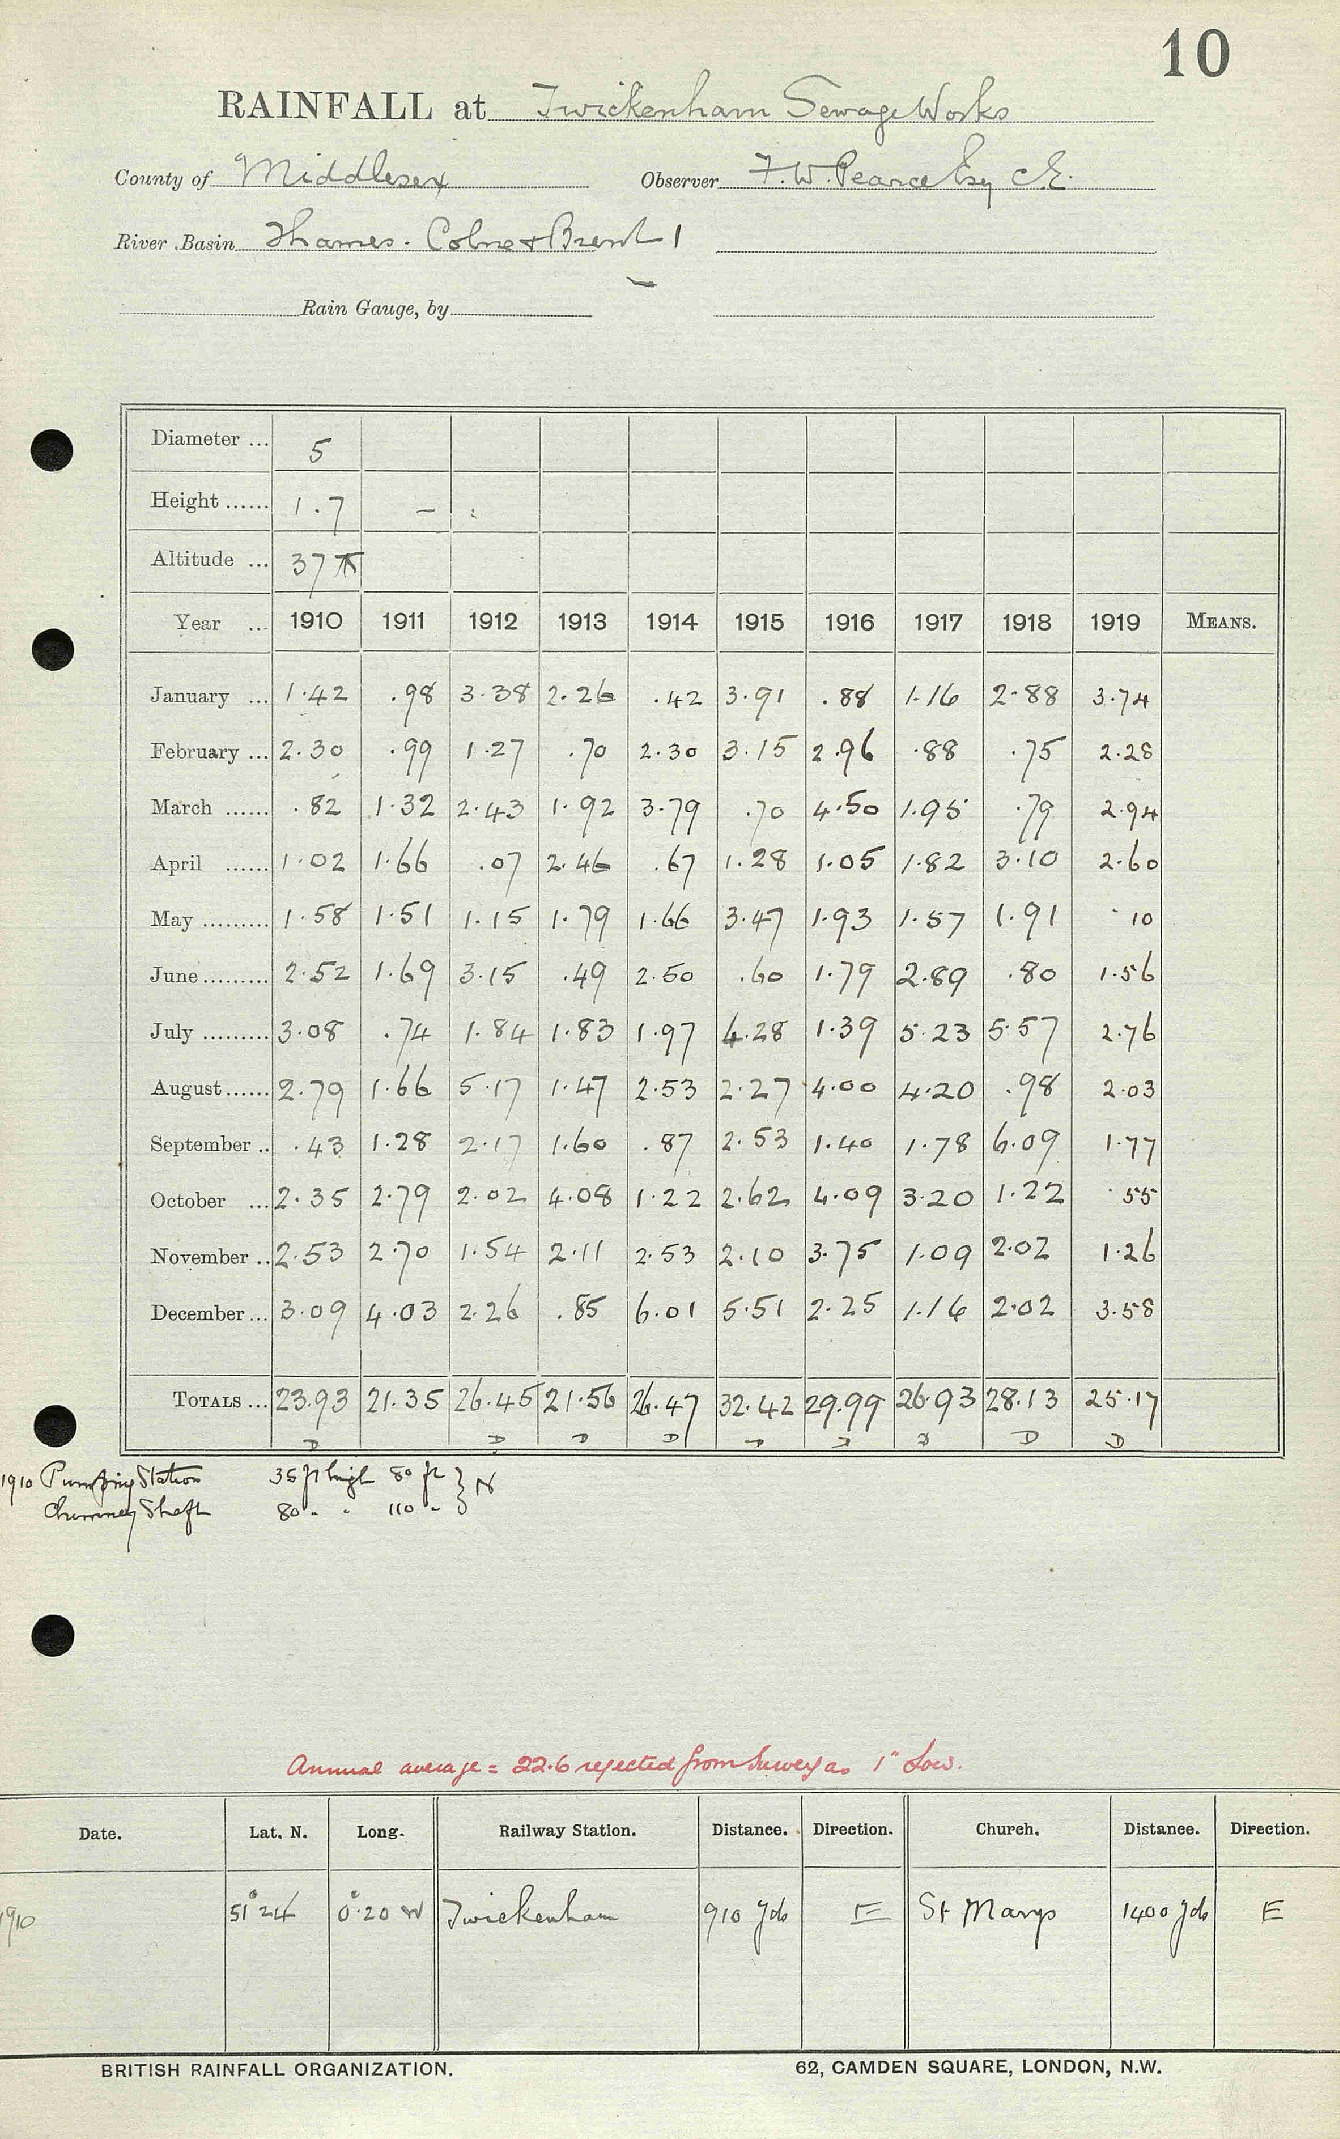 10
RAINFALL at Twickenham Sewage Works
County of Middlesex Observer F. W. Pearce Esq C.E.
River Basin Thames. Colne & Brent 1
Rain Gauge, by
Diameter ... 5
Height ...... 1.7 –
Altitude ... 37
Year ... 1910 1911 1912 1913 1914 1915 1916 1917 1918 1919 MEANS.
January ... 1.42 .98 3.38 2.26 .42 3.91 .88 1.16 2.88 3.74
February ... 2.30 .99 1.27 .70 2.30 3.15 2.96 .88 .75 2.28
March ...... .82 1.32 2.43 1.92 3.79 .70 4.50 1.95 .79 2.94
April ...... 1.02 1.66 .07 2.46 .67 1.28 1.05 1.82 3.10 2.60
May ......... 1.58 1.51 1.15 1.79 1.66 3.47 1.93 1.57 1.91 .10
June ......... 2.52 1.69 3.15 .49 2.50 .60 1.79 2.89 .80 1.56
July ......... 3.08 .74 1.84 1.83 1.97 4.28 1.39 5.23 5.57 2.76
August ...... 2.79 1.66 5.17 1.47 2.53 2.27 4.00 4.20 .98 2.03
September .. .43 1.28 2.17 1.60 .87 2.53 1.40 1.78 6.09 1.77
October ... 2.35 2.79 2.02 4.08 1.22 2.62 4.09 3.20 1.22 .55
November .. 2.53 2.70 1.54 2.11 2.53 2.10 3.75 1.09 2.02 1.26
December ... 3.09 4.03 2.26 .85 6.01 5.51 2.25 1.16 2.02 3.58
TOTALS ... 23.93 21.35 26.45 21.56 26.47 32.42 29.99 26.93 28.13 25.17
D D D D D D D D D
1910 Pumping Station 35 ft high 80 ft } N
Chimney Shaft 80 " " 110 "
Annual average = 22.6 rejected from Survey as 1" Low.
Date. Lat. N. Long. Railway Station. Distance. Direction. Church. Distance. Direction.
1910 51° 24 0° 20 W Twickenham 910 yds E St Marys 1400 yds E
BRITISH RAINFALL ORGANIZATION. 62, CAMDEN SQUARE, LONDON, N.W.